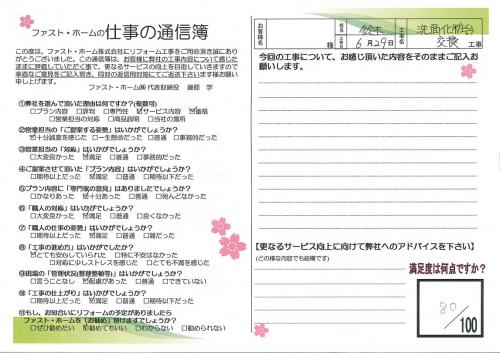 ファスト・ホームの仕事の通信簿
この度は、ファスト・ホーム株式会社にリフォーム工事をご用命頂き誠にあり
がとうございました。この通信簿は、お客様に弊社の工事内容について感じた
ままに評価していただく事で、更なるサービスの向上を目指していきますので
率直なご意見をご記入頂き、同封の返信用封筒にてご返送下さいます様お願い
申し上げます。
ファスト・ホーム㈱ 代表取締役 藤原 学
①弊社を選んで頂いた理由は何ですか?(複数可)
□プラン内容 □評判 □専門性 ☑サービス内容 ☑価格
□営業担当の対応 □商品説明 □当社の場所
②営業担当の「ご提案する姿勢」はいかがでしたか?
☑十分誠意を感じた □一生懸命だった □普通 □事務的だった
③営業担当の「対応」はいかがでしたか?
□大変良かった ☑満足 □普通 □事務的だった
④ご提案させて頂いた「プラン内容」はいかがでしたか?
□期待以上だった ☑満足 □普通 □期待以下だった
⑤プラン内容に「専門家の意見」はありましたでしょうか?
□かなりあった ☑十分あった □普通 □殆んどなかった
⑥「職人の対応」はいかがでしょうか?
□大変良かった ☑満足 □普通 □良くなかった
⑦「職人の仕事の姿勢」はいかがでしたか?
□期待以上だった ☑満足 □普通 □雑だった
⑧「工事の進め方」はいかがでしたか?
☑とても安心していられた □特に不安はなかった
□対応に少しストレスを感じた □とても不満を感じた
⑨現場の「管理状況(整理整頓等)」はいかがでしょうか?
□言うことなし ☑配慮があった □普通 □できていない
⑩「工事の仕上がり」はいかがでしょうか?
□期待以上だった ☑満足 □普通 □期待以下だった
⑪もし、お知合いにリフォームの予定がありましたら
ファスト・ホームを「お勧め」頂けますでしょうか?
□ぜひ勧めたい ☑勧めてもいい □わからない □勧められない
お客様名 様 担当 鈴木 工事名 洗面化粧台
6月29日 交換 工事
今回の工事について、お感じ頂いた内容をそのままご記入お
願いします。
【更なるサービス向上に向けて弊社へのアドバイスを下さい】
(どの様な内容でも結構です)
満足度は何点ですか?
80
/100